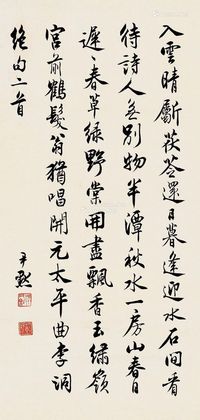 入雲晴斸茯苓還日暮逢迎水石間看
待詩人無別物半潭秋水一房山春日
遲々春草綠野棠開盡飄香玉繡嶺
宮前鶴髮翁猶唱開元太平曲李洞
絕句二首
尹默